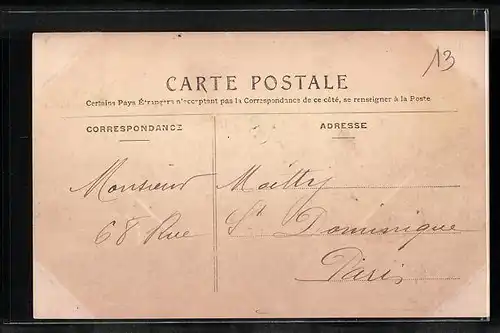 13
CARTE POSTALE
Certains Pays Étrangers n'acceptant pas la Correspondance de ce côté, se renseigner à la Poste
CORRESPONDANCE
ADRESSE
Monsieur Mailly
68 Rue St Dominique
Paris